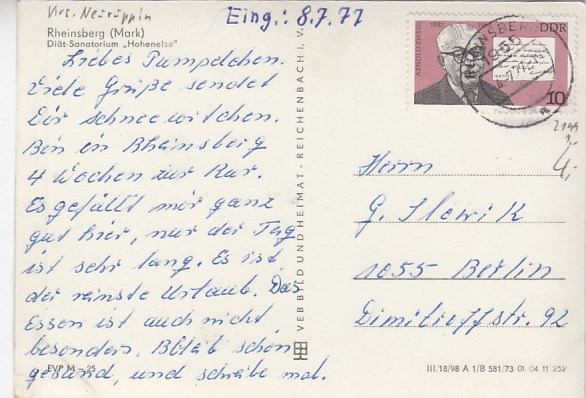 Krs. Neuruppin
Eing.: 8.7.77
Rheinsberg (Mark)
Diät-Sanatorium „Hohenelse"
Liebes Pumpelchen.
Viele Grüße sendet
Dir schneewitchen.
Bin in Rheinsberg
4 Wochen zur Kur.
Es gefällt mir ganz
gut hier, nur der Tag
ist sehr lang. Es ist
der reinste Urlaub. Das
Essen ist auch nicht
besonders. Bleib schön
gesund, und schreibe mal.
EVP M –25
VEB BILD UND HEIMAT · REICHENBACH I. V.
ARNOLD ZWEIG 1887
DDR
10
RHEINSBERG
1955
2199
4,-
Herrn
G. Slowik
1055 Berlin
Dimitroffstr. 92
III/18/98 A 1/B 581/73 01 04 11 252